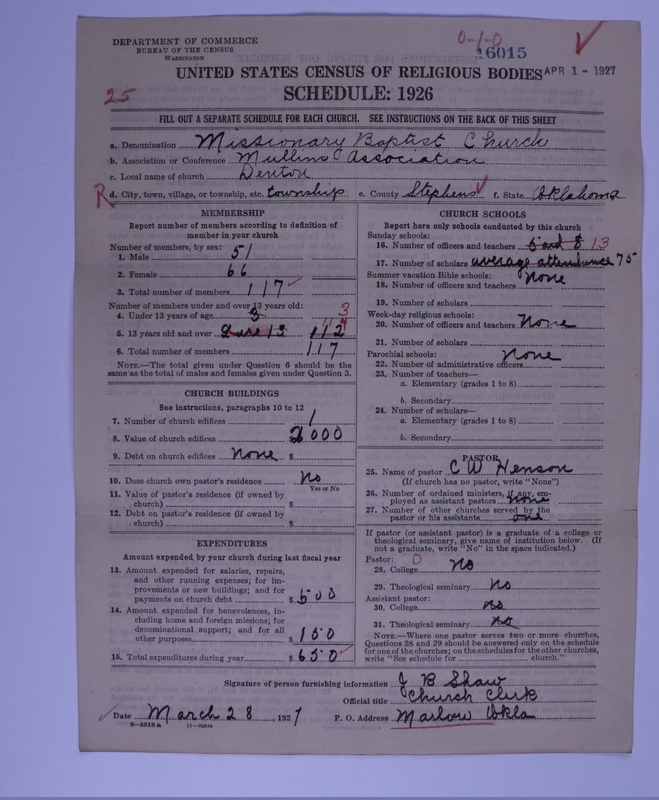 DEPARTMENT OF COMMERCE
BUREAU OF THE CENSUS
WASHINGTON
0-1-0
16015
APR 1 - 1927
UNITED STATES CENSUS OF RELIGIOUS BODIES
25
SCHEDULE: 1926
FILL OUT A SEPARATE SCHEDULE FOR EACH CHURCH. SEE INSTRUCTIONS ON THE BACK OF THIS SHEET
a. Denomination Missionary Baptist Church
b. Association or Conference Mullins Association
c. Local name of church Denton
R d. City, town, village, or township, etc. township e. County Stephens f. State Oklahoma
MEMBERSHIP
Report number of members according to definition of member in your church
Number of members, by sex:
1. Male 51
2. Female 66
3. Total number of members 117
Number of members under and over 13 years old:
4. Under 13 years of age 3 3
5. 13 years old and over 114
6. Total number of members 117
NOTE.—The total given under Question 6 should be the
same as the total of males and females given under Question 3.
CHURCH BUILDINGS
See instructions, paragraphs 10 to 12
7. Number of church edifices 1
8. Value of church edifices 2000
9. Debt on church edifices None $
10. Does church own pastor's residence No
Yes or No
11. Value of pastor's residence (if owned by
church) $
12. Debt on pastor's residence (if owned by
church) $
EXPENDITURES
Amount expended by your church during last fiscal year
13. Amount expended for salaries, repairs,
and other running expenses; for im-
provements or new buildings; and for
payments on church debt $ 500
14. Amount expended for benevolences, in-
cluding home and foreign missions; for
denominational support; and for all
other purposes $ 150
15. Total expenditures during year $ 650
CHURCH SCHOOLS
Report here only schools conducted by this church
Sunday schools:
16. Number of officers and teachers 5 and 8 13
17. Number of scholars average attendance 75
Summer vacation Bible schools:
18. Number of officers and teachers None
19. Number of scholars
Week-day religious schools:
20. Number of officers and teachers None
21. Number of scholars
Parochial schools: None
22. Number of administrative officers
23. Number of teachers—
a. Elementary (grades 1 to 8)
b. Secondary
24. Number of scholars—
a. Elementary (grades 1 to 8)
b. Secondary
PASTOR
25. Name of pastor C W Henson
(If church has no pastor, write "None")
26. Number of ordained ministers, if any, em-
ployed as assistant pastors none
27. Number of other churches served by the
pastor or his assistants one
If pastor (or assistant pastor) is a graduate of a college or
theological seminary, give name of institution below. (If
not a graduate, write "No" in the space indicated.)
Pastor: 0
28. College No
29. Theological seminary No
Assistant pastor:
30. College no
31. Theological seminary no
NOTE.—Where one pastor serves two or more churches,
Questions 28 and 29 should be answered only on the schedule
for one of the churches; on the schedules for the other churches,
write "See schedule for church."
Signature of person furnishing information J B Shaw
Official title Church Clerk
Date March 28, 1927 P. O. Address Marlow Okla
8-5518a